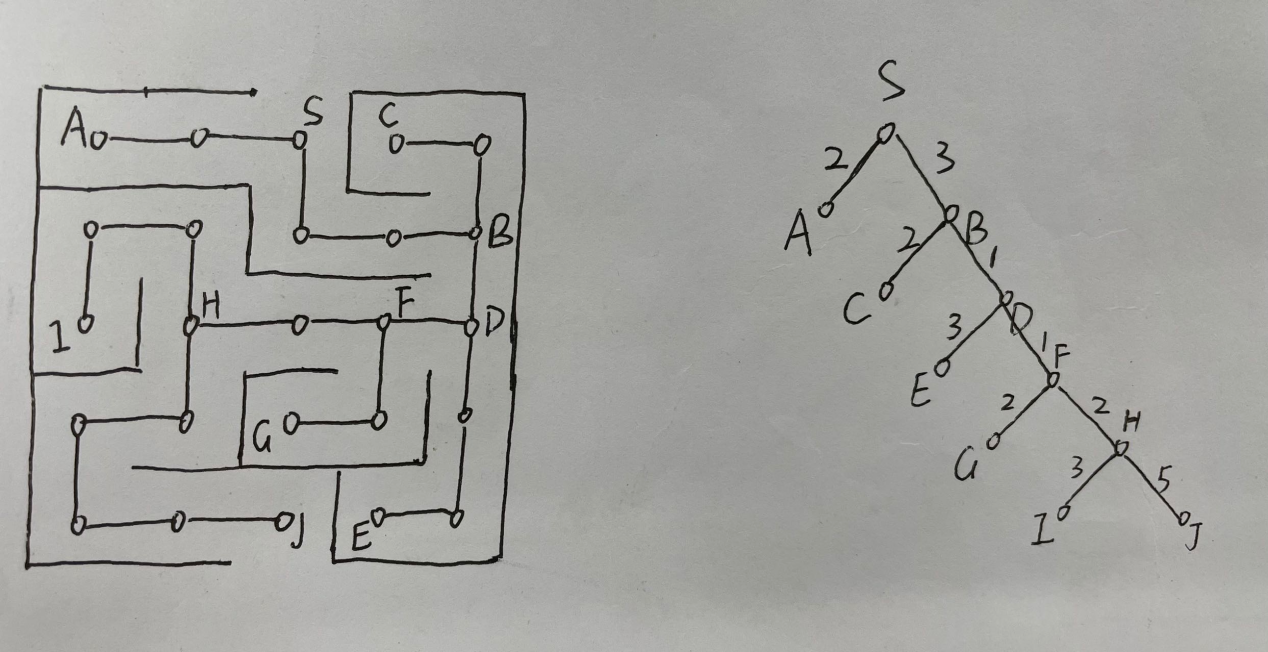 A S C
B
I H F D
G
E
J
S
2 3
A B
2 1
C D
3 1
E F
2 2
G H
3 5
I J